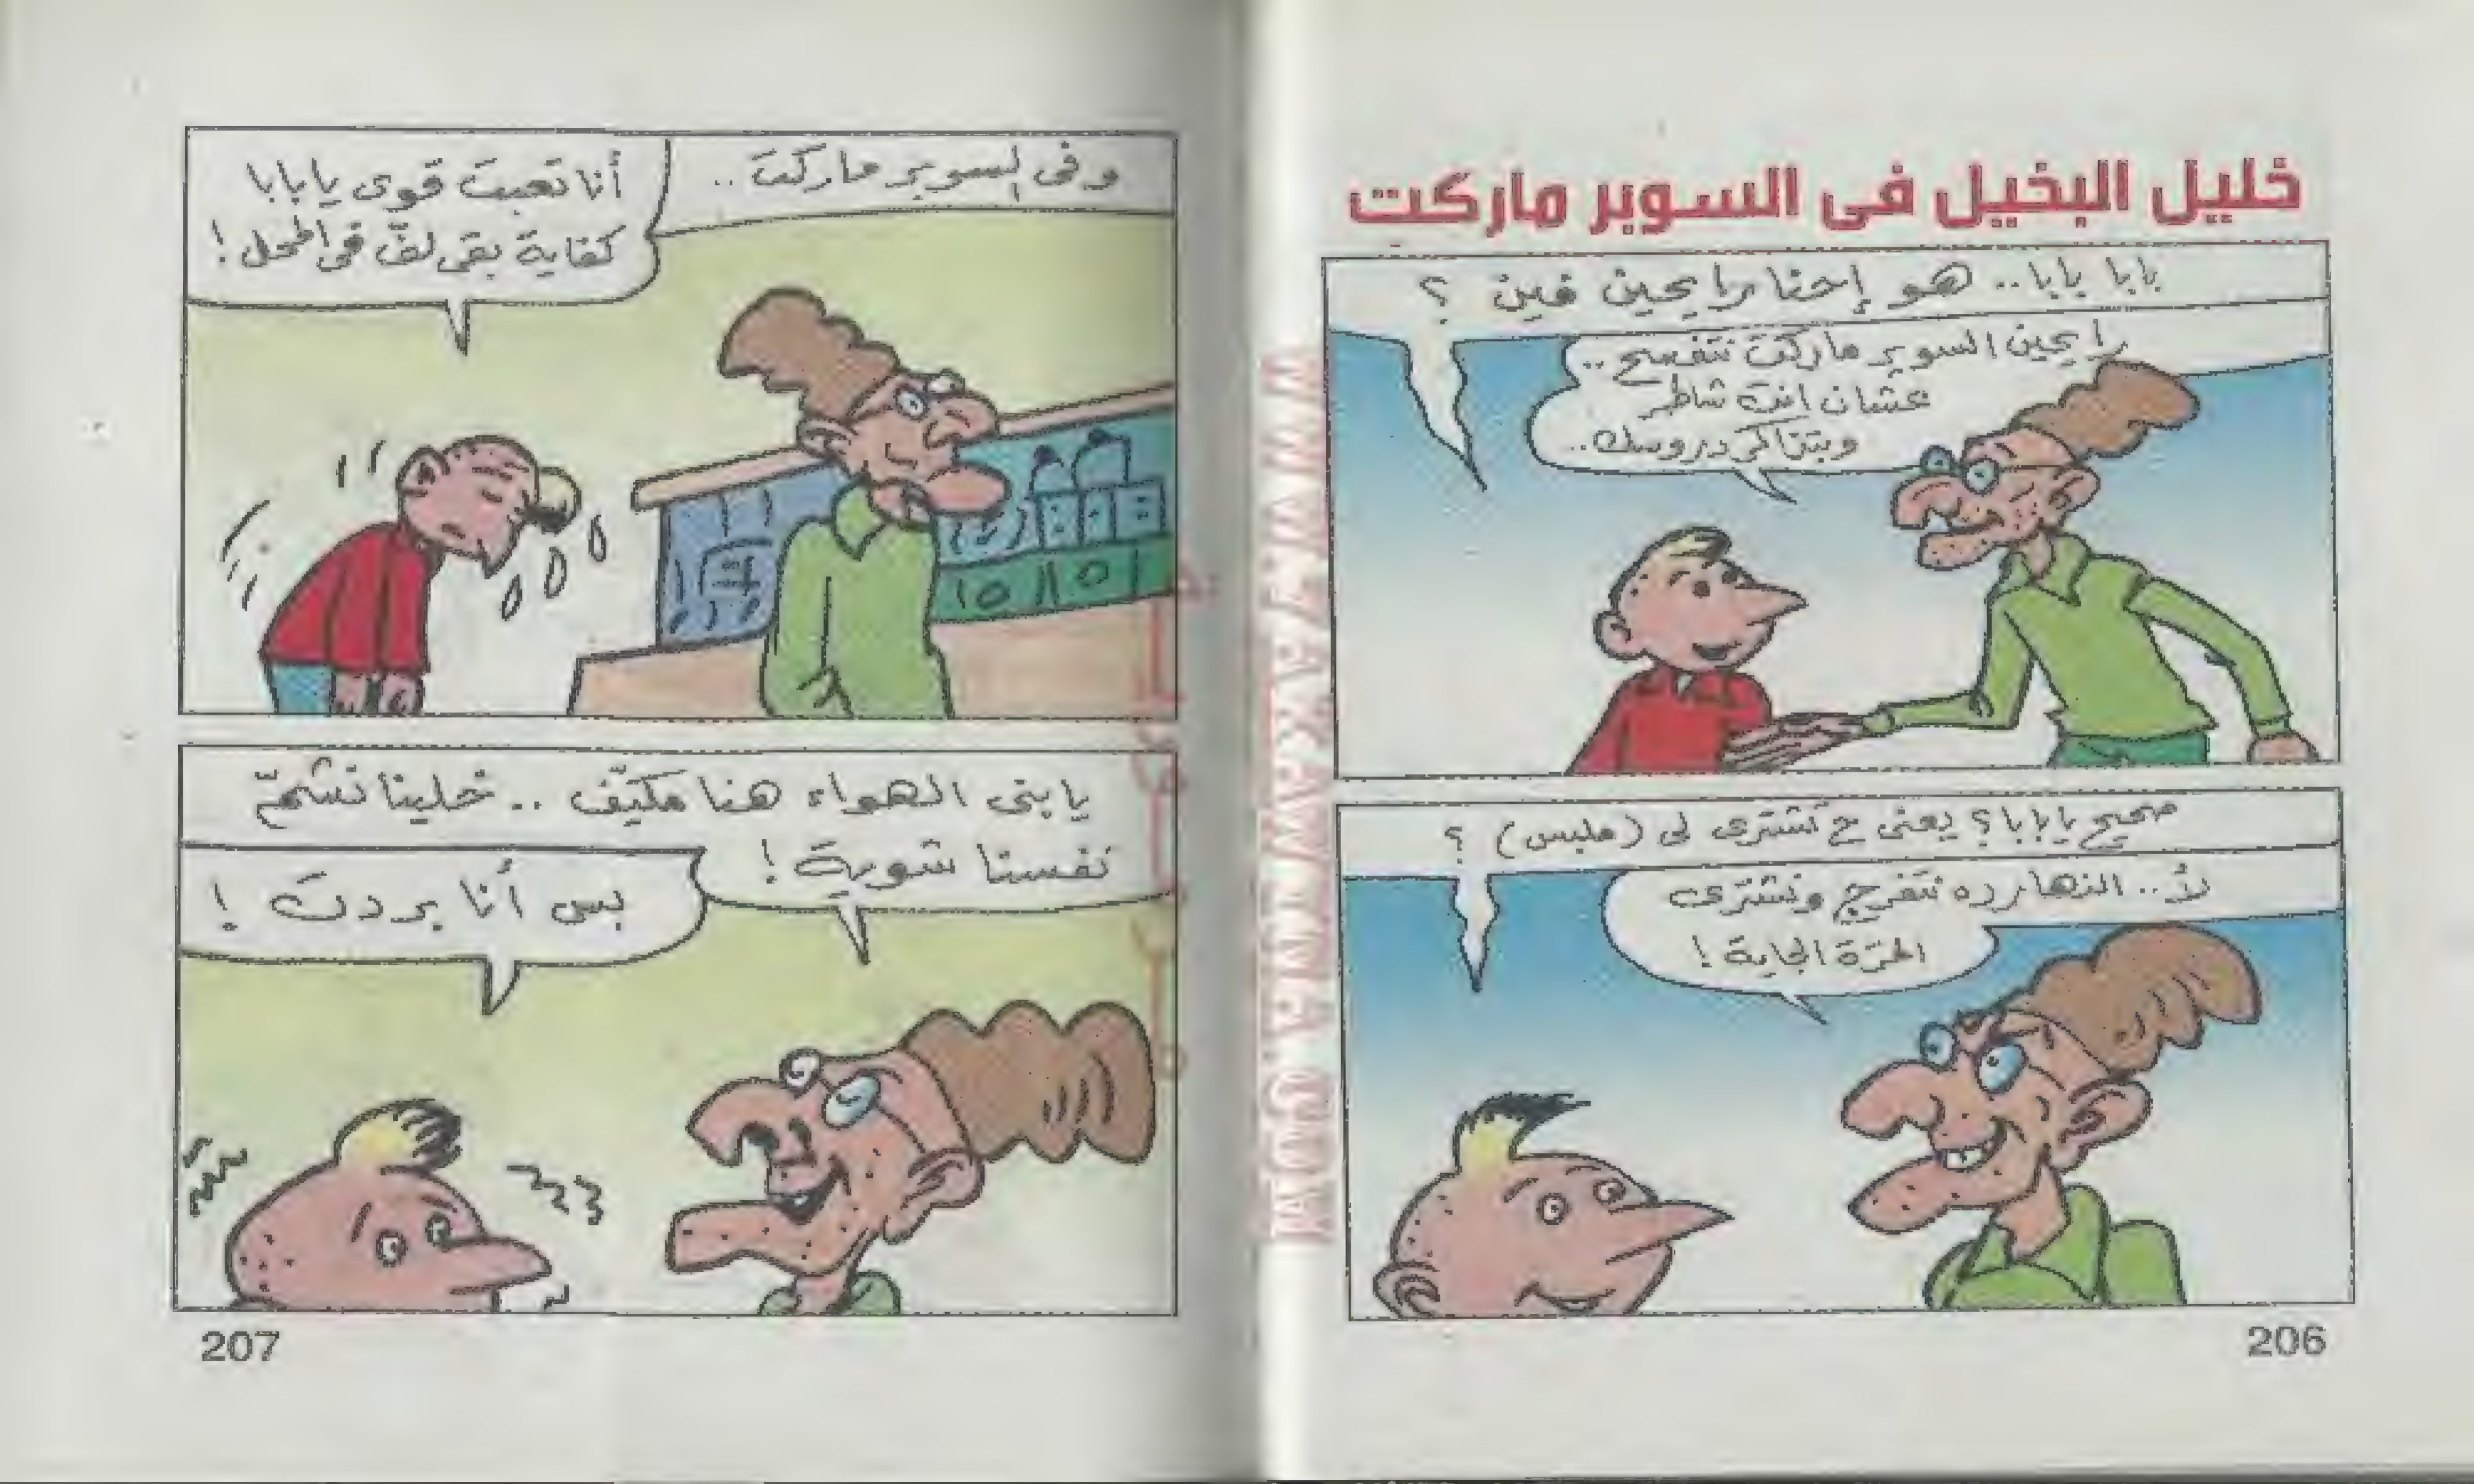 خليل البخيل فى السوبر ماركت
بابا بابا.. هو إحنا رايحين فين ؟
رايحين السوبر ماركت نتفسح..
عشان إنت شاطر
وبتذاكر دروسك..
صحيح يا بابا؟ يعنى ح تشترى لى (ملبس) ؟
لأ.. النهارده نتفرج ونشترى
المرّة الجاية !
206
وفى السوبر ماركت..
أنا تعبت قوى يا بابا
كفاية بقى لفّ فى المحل !
يا بنى الهواء هنا مكيّف .. خلينا نشمّ
نفسنا شوية !
بس أنا بردت !
207